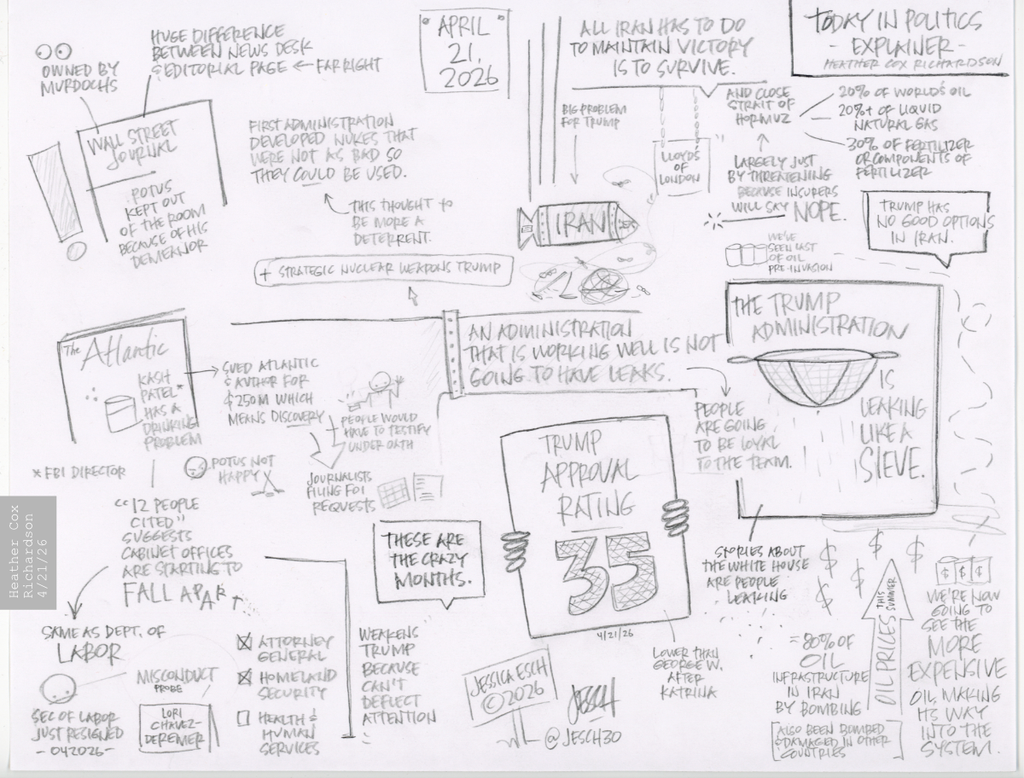 HUGE DIFFERENCE
BETWEEN NEWS DESK
& EDITORIAL PAGE ← FAR RIGHT
OWNED BY
MURDOCHS
WALL STREET
JOURNAL
POTUS
KEPT OUT
OF THE ROOM
BECAUSE OF HIS
DEMEANOR
APRIL
21,
2026
FIRST ADMINISTRATION
DEVELOPED NUKES THAT
WERE NOT AS BAD SO
THEY COULD BE USED.
THIS THOUGHT TO
BE MORE A
DETERRENT.
+ STRATEGIC NUCLEAR WEAPONS TRUMP
ALL IRAN HAS TO DO
TO MAINTAIN VICTORY
IS TO SURVIVE.
TODAY IN POLITICS
- EXPLAINER -
HEATHER COX RICHARDSON
BIG PROBLEM
FOR TRUMP
IRAN
LLOYDS
OF
LONDON
AND CLOSE
STRAIT OF
HORMUZ
20% OF WORLD'S OIL
20%+ OF LIQUID
NATURAL GAS
30% OF FERTILIZER
OR COMPONENTS OF
FERTILIZER
LARGELY JUST
BY THREATENING
BECAUSE INSURERS
WILL SAY NOPE.
TRUMP HAS
NO GOOD OPTIONS
IN IRAN.
WE'VE
SEEN LAST
OF OIL
PRE-INVASION
The Atlantic
KASH
PATEL*
HAS A
DRINKING
PROBLEM
* FBI DIRECTOR
SUED ATLANTIC
& AUTHOR FOR
$250M WHICH
MEANS DISCOVERY
PEOPLE WOULD
HAVE TO TESTIFY
UNDER OATH
POTUS NOT
HAPPY
JOURNALISTS
FILING FOI
REQUESTS
AN ADMINISTRATION
THAT IS WORKING WELL IS NOT
GOING TO HAVE LEAKS.
PEOPLE
ARE GOING
TO BE LOYAL
TO THE TEAM.
THE TRUMP
ADMINISTRATION
IS
LEAKING
LIKE A
SIEVE.
STORIES ABOUT
THE WHITE HOUSE
ARE PEOPLE
LEAKING
TRUMP
APPROVAL
RATING
35
4/21/26
LOWER THAN
GEORGE W.
AFTER
KATRINA
THESE ARE
THE CRAZY
MONTHS.
"12 PEOPLE
CITED"
SUGGESTS
CABINET OFFICES
ARE STARTING TO
FALL APART
SAME AS DEPT. OF
LABOR
MISCONDUCT
PROBE
SEC OF LABOR
JUST RESIGNED
- 042026 -
LORI
CHAVEZ-
DEREMER
ATTORNEY
GENERAL
HOMELAND
SECURITY
HEALTH &
HUMAN
SERVICES
WEAKENS
TRUMP
BECAUSE
CAN'T
DEFLECT
ATTENTION
JESSICA ESCH
© 2026
JESCH
@JESCH30
$ $ $ $ $
= 80% OF
OIL
INFRASTRUCTURE
IN IRAN
BY BOMBING
ALSO BEEN BOMBED
& DAMAGED IN OTHER
COUNTRIES
OIL PRICES THIS SUMMER
$ $ $
WE'RE NOW
GOING TO
SEE THE
MORE
EXPENSIVE
OIL MAKING
ITS WAY
INTO THE
SYSTEM.
Heather Cox
Richardson
4/21/26